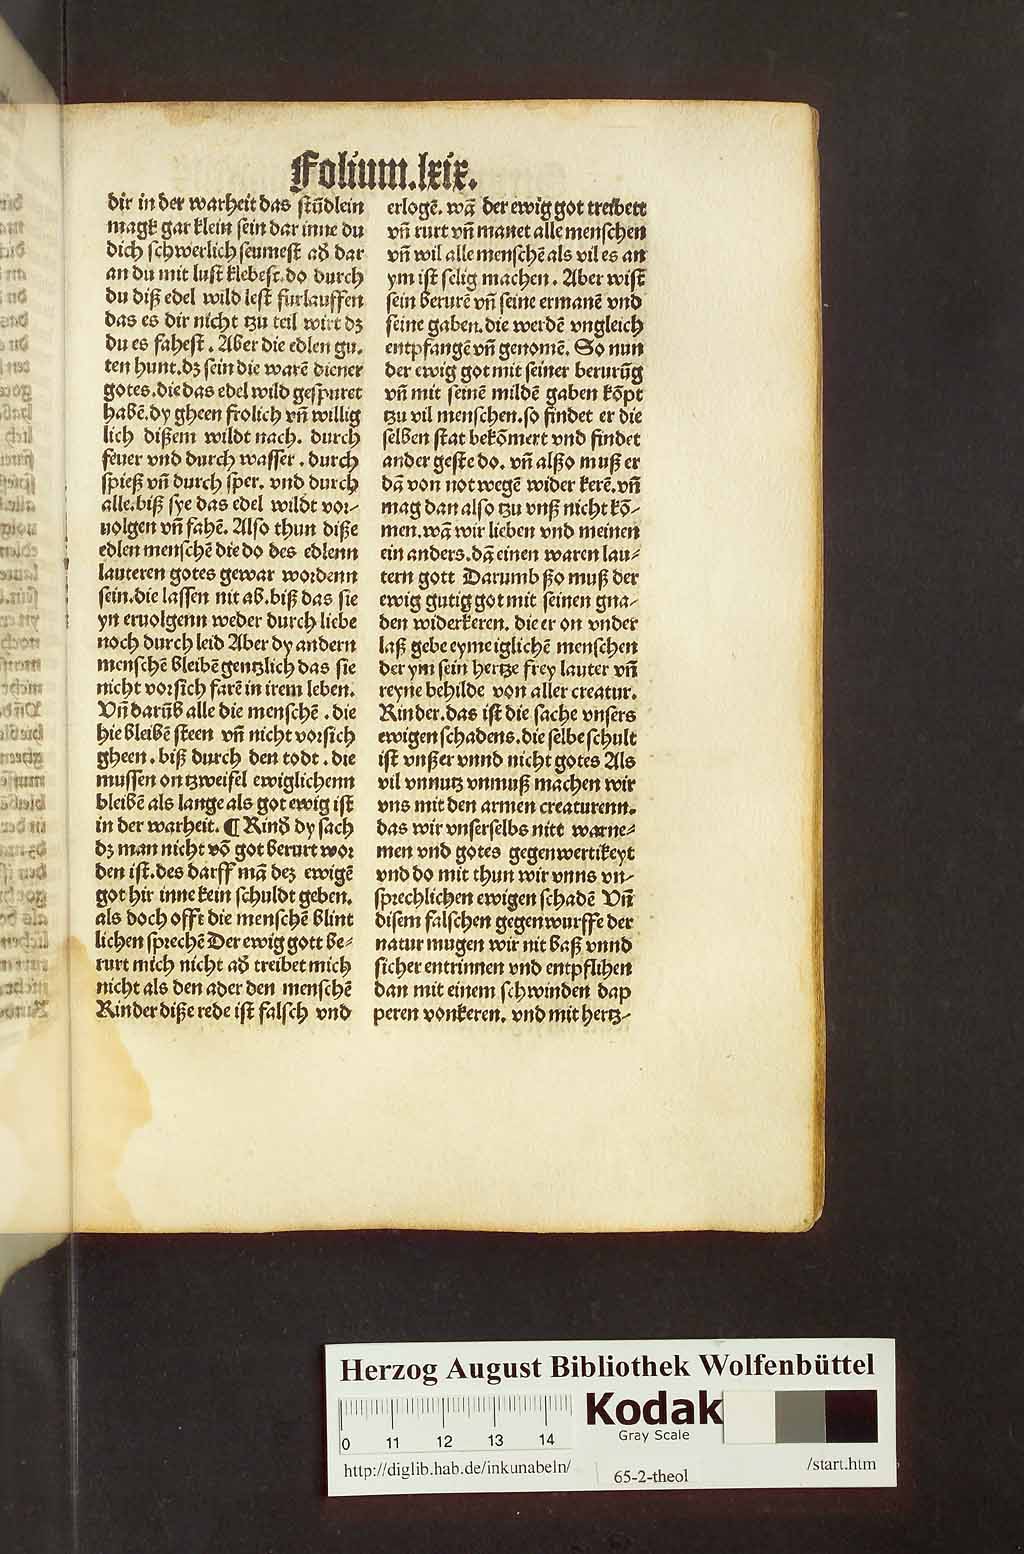 Folium.lxix.
dir in der warheit das stūdlein
magk gar klein sein dar inne du
dich schwerlich seumest ad̕ dar
an du mit lust klebest.do durch
du diß edel wild lest furlauffen
das es dir nicht tzu teil wirt dz
du es fahest. Aber die edlen gu.
ten hunt.dz sein die warē diener
gotes.die das edel wild gespuret
habē.dy gheen frolich vn̄ willig
lich dißem wildt nach. durch
feuer vnd durch wasser. durch
spieß vn̄ durch sper. vnd durch
alle.biß sye das edel wildt vor-
uolgen vn̄ fahē. Also thun diße
edlen menschē die do des edlenn
lauteren gotes gewar wordenn
sein.die lassen nit ab.biß das sie
yn eruolgenn weder durch liebe
noch durch leid Aber dy andern
menschē bleibē gentzlich das sie
nicht vorsich farē in irem leben.
Vn̄ darūb alle die menschē. die
hie bleibē steen vn̄ nicht vorsich
gheen. biß durch den todt. die
mussen on tzweifel ewiglichenn
bleibē als lange als got ewig ist
in der warheit. ¶ Kind̕ dy sach
dz man nicht vō got berurt wor
den ist.des darff mā dez ewigē
got hir inne kein schuldt geben.
als doch offt die menschē blint
lichen sprechē Der ewig gott be-
rurt mich nicht ad̕ treibet mich
nicht als den ader den menschē
Kinder diße rede ist falsch vnd
erlogē. wā der ewig got treibett
vn̄ rurt vn̄ manet alle menschen
vn̄ wil alle menschē als vil es an
ym ist selig machen. Aber wist
sein berurē vn̄ seine ermanē vnd
seine gaben.die werdē vngleich
entpfangē vn̄ genomē. So nun
der ewig got mit seiner berurūg
vn̄ mit seinē mildē gaben kōpt
tzu vil menschen.so findet er die
selben stat bekōmert vnd findet
ander geste do. vn̄ alßo muß er
dā von not wegē wider kerē.vn̄
mag dan also tzu vnß nicht kō-
men.wā wir lieben vnd meinen
ein anders.dā einen waren lau-
tern gott Darumb ßo muß der
ewig gutig got mit seinen gna-
den widerkeren. die er on vnder
laß gebe eyme iglichē menschen
der ym sein hertze frey lauter vn̄
reyne behilde von aller creatur.
Kinder.das ist die sache vnsers
ewigen schadens.die selbe schult
ist vnßer vnnd nicht gotes Als
vil vnnutz vnmuß machen wir
vns mit den armen creaturenn.
das wir vnserselbs nitt warne-
men vnd gotes gegenwertikeyt
vnd do mit thun wir vnns vn-
sprechlichen ewigen schadē Vn̄
disem falschen gegenwurffe der
natur mugen wir nit baß vnnd
sicher entrinnen vnd entpflihen
dan mit einem schwinden dap
peren vonkeren. vnd mit hertz-
Herzog August Bibliothek Wolfenbüttel
0 11 12 13 14
Kodak
Gray Scale
http://diglib.hab.de/inkunabeln/
65-2-theol
/start.htm